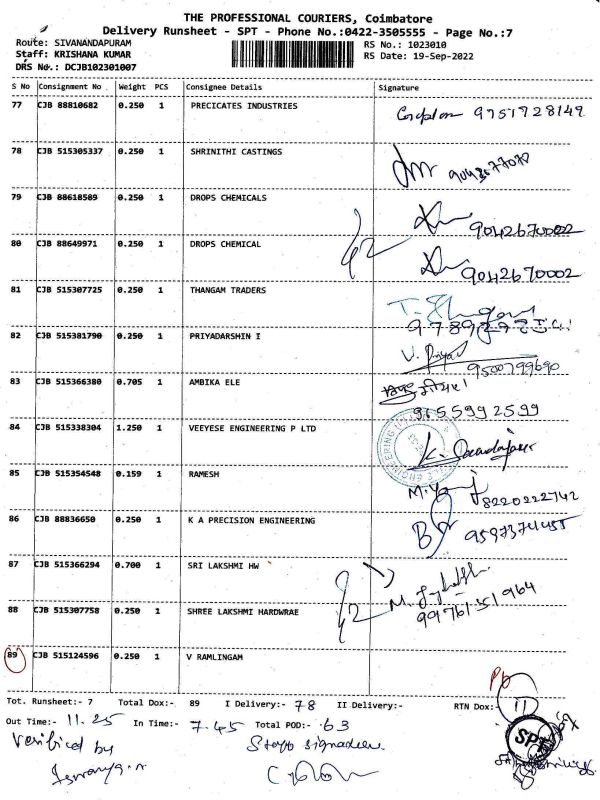 THE PROFESSIONAL COURIERS, Coimbatore
Delivery Runsheet - SPT - Phone No.:0422-3505555 - Page No.:7
Route: SIVANANDAPURAM
Staff: KRISHANA KUMAR
DRS No.: DCJB102301007
RS No.: 1023010
RS Date: 19-Sep-2022
S No Consignment No Weight PCS Consignee Details Signature
77 CJB 88810682 0.250 1 PRECICATES INDUSTRIES 9751928149
78 CJB 515305337 0.250 1 SHRINITHI CASTINGS
79 CJB 88618589 0.250 1 DROPS CHEMICALS 9042670002
80 CJB 88649971 0.250 1 DROPS CHEMICAL 9042670002
81 CJB 515307725 0.250 1 THANGAM TRADERS
82 CJB 515381790 0.250 1 PRIYADARSHIN I V. Priya 9500799690
83 CJB 515366380 0.705 1 AMBIKA ELE 9655992599
84 CJB 515338304 1.250 1 VEEYESE ENGINEERING P LTD
85 CJB 515354548 0.159 1 RAMESH 8220222742
86 CJB 88836650 0.250 1 K A PRECISION ENGINEERING 9597374455
87 CJB 515366294 0.700 1 SRI LAKSHMI HW
88 CJB 515307758 0.250 1 SHREE LAKSHMI HARDWRAE 9976151964
89 CJB 515124596 0.250 1 V RAMLINGAM
Tot. Runsheet:- 7 Total Dox:- 89 I Delivery:- 78 II Delivery:- RTN Dox:- 11
Out Time:- 11.25 In Time:- 7.45 Total POD:- 63
Verified by
Staff signature
SPT